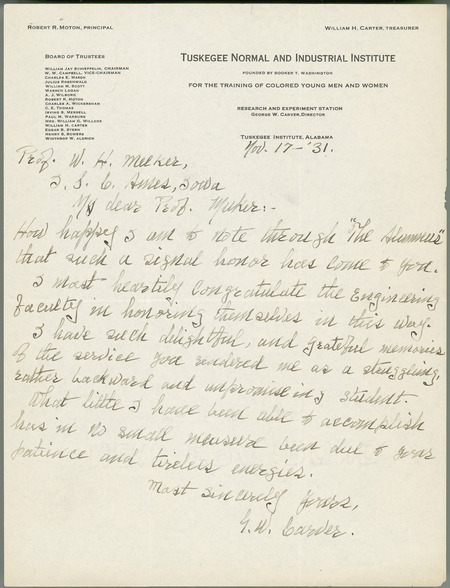 ROBERT R. MOTON, PRINCIPAL
WILLIAM H. CARTER, TREASURER
BOARD OF TRUSTEES
WILLIAM JAY SCHIEFFELIN, CHAIRMAN
W. W. CAMPBELL, VICE-CHAIRMAN
CHARLES E. MASON
JULIUS ROSENWALD
WILLIAM M. SCOTT
WARREN LOGAN
A. J. WILBORN
ROBERT R. MOTON
CHARLES A. WICKERSHAM
C. E. THOMAS
IRVING S. MERRELL
PAUL M. WARBURG
MRS. WILLIAM G. WILLCOX
WILLIAM H. CARTER
EDGAR B. STERN
HENRY B. BOWERS
WINTHROP W. ALDRICH
TUSKEGEE NORMAL AND INDUSTRIAL INSTITUTE
FOUNDED BY BOOKER T. WASHINGTON
FOR THE TRAINING OF COLORED YOUNG MEN AND WOMEN
RESEARCH AND EXPERIMENT STATION
GEORGE W. CARVER, DIRECTOR
TUSKEGEE INSTITUTE, ALABAMA
Nov. 17-'31.
Prof. W. H. Meeker,
I. S. C. Ames, Iowa
My dear Prof. Meeker:-
How happy I am to note through "The Alumnus"
that such a signal honor has come to you.
I most heartily congratulate the Engineering
faculty in honoring themselves in this way.
I have such delightful, and grateful memories
of the service you rendered me as a struggling,
rather backward and unpromising student.
What little I have been able to accomplish
has in no small measure been due to your
patience and tireless energies.
Most sincerely yours,
G. W. Carver.